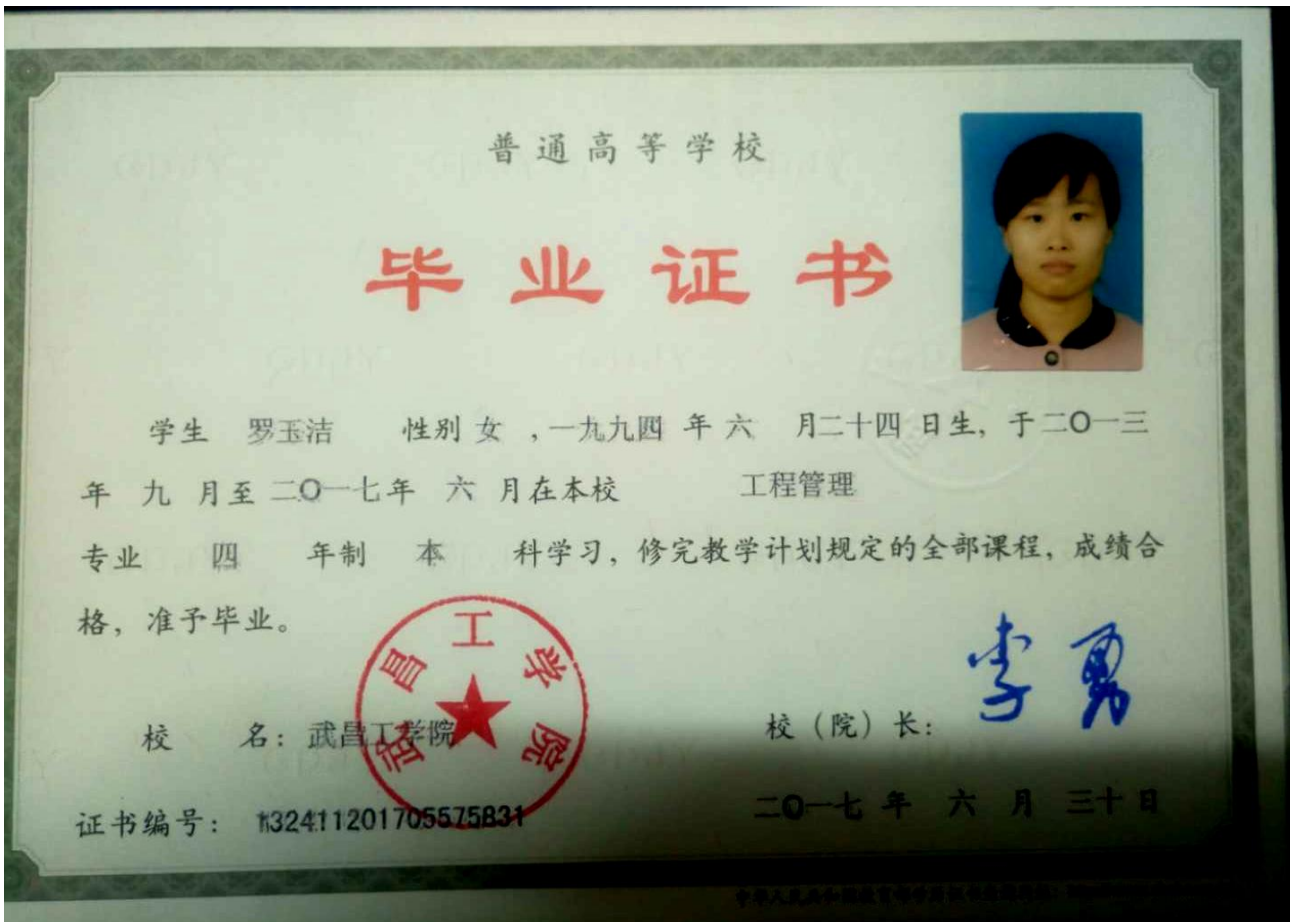 普通高等学校
毕业证书
学生 罗玉洁 性别 女 ,一九九四 年 六 月二十四 日生, 于二O一三
年 九 月至 二O一七年 六 月在本校 工程管理
专业 四 年制 本 科学习, 修完教学计划规定的全部课程, 成绩合
格, 准予毕业。
武昌工学院
李勇
校 名: 武昌工学院
校(院)长:
证书编号: 132411201705575831
二O一七 年 六 月 三十 日